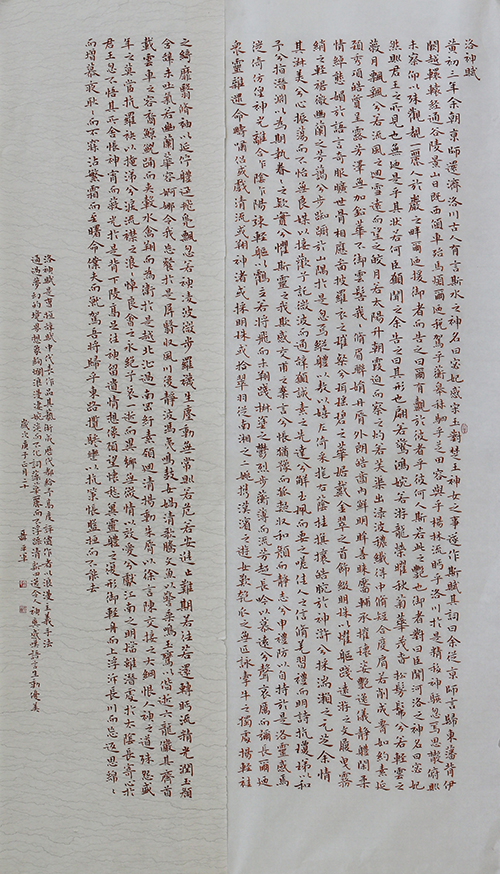 洛神賦
黃初三年余朝京師還濟洛川古人有言斯水之神名曰宓妃感宋玉對楚王神女之事遂作斯賦其詞曰余從京師言歸東藩背伊
闕越轘轅經通谷陵景山日既西傾車殆馬煩爾迺稅駕乎蘅皋秣駟乎芝田容與乎楊林流眄乎洛川於是精移神駭忽焉思散俯則
未察仰以殊觀覩一麗人於巖之畔爾迺援御者而告之曰爾有覿於彼者乎彼何人斯若此之豔也御者對曰臣聞河洛之神名曰宓妃
然則君王之所見也無迺是乎其狀若何臣願聞之余告之曰其形也翩若驚鴻婉若游龍榮曜秋菊華茂春松髣髴兮若輕雲之
蔽月飄飖兮若流風之迴雪遠而望之皎若太陽升朝霞迫而察之灼若芙蕖出淥波穠纖得中脩短合度肩若削成腰如約素延
頸秀項皓質呈露芳澤無加鉛華不御雲髻峩峩脩眉聯娟丹脣外朗皓齒內鮮明眸善睞靨輔承權瓌姿豔逸儀靜體閑柔
情綽態媚於語言奇服曠世骨相應圖披羅衣之璀粲兮珥瑤碧之華琚戴金翠之首飾綴明珠以耀軀踐遠游之文履曳霧
綃之輕裾微幽蘭之芳藹兮步踟躕於山隅於是忽焉縱體以遨以嬉左倚采旄右蔭桂旗攘皓腕於神滸兮採湍瀨之玄芝余情
其淑美兮心振蕩而不怡無良媒以接歡兮託微波而通辭願誠素之先達兮解玉佩而要之嗟佳人之信脩羌習禮而明詩抗瓊珶以和
予兮指潛淵以為期執眷眷之款實兮懼斯靈之我欺感交甫之棄言兮悵猶豫而狐疑收和顏而靜志兮申禮防以自持於是洛靈感焉
徙倚彷徨神光離合乍陰乍陽竦輕軀以鶴立若將飛而未翔踐椒塗之郁烈步蘅薄而流芳超長吟以慕遠兮聲哀厲而彌長爾迺
衆靈雜遝命儔嘯侶或戲清流或翔神渚或採明珠或拾翠羽從南湘之二妃攜漢濱之遊女歎匏瓜之無匹詠牽牛之獨處揚輕袿
之綺靡翳脩袖以延佇體迅飛鳧飄忽若神凌波微步羅襪生塵動無常則若危若安進止難期若往若還轉眄流精光潤玉顏
含辭未吐氣若幽蘭華容婀娜令我忘餐於是屏翳收風川後靜波馮夷鳴鼓女媧清歌騰文魚以警乘鳴玉鸞以偕逝六龍儼其齊首
載雲車之容裔鯨鯢踴而夾轂水禽翔而為衛於是越北沚過南岡紆素領迴清揚動朱脣以徐言陳交接之大綱恨人神之道殊怨盛
年之莫當抗羅袂以掩涕兮淚流襟之浪浪悼良會之永絕兮哀一逝而異鄉無微情以效愛兮獻江南之明璫雖潛處於太陰長寄心於
君王忽不悟其所舍悵神宵而蔽光於是背下陵高足往神留遺情想像顧望懷愁冀靈體之復形御輕舟而上泝浮長川而忘返思綿綿
而增慕夜耿耿而不寐沾繁霜而至曙命僕夫而就駕吾將歸乎東路攬騑轡以抗策悵盤桓而不能去
洛神賦是曹植辭賦中代表作品其藝術成歷代都給予高度評價作者以浪漫主義手法
通過夢幻的境界想象絢爛浪漫淒婉淡而化詞藻華麗而不浮躁清新四溢令人神魚感嘆語言生動優美
歲次庚子六月二十